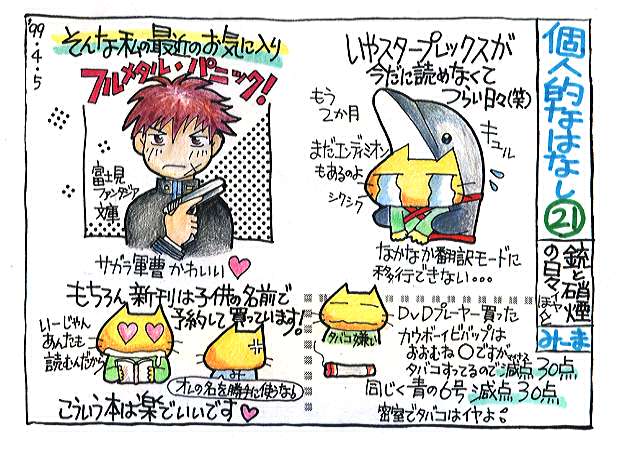 '99・4・5
個人的なはなし㉑
銃と硝煙
の日々
みーま
いやスタープレックスが
今だに読めなくて
つらい日々(笑)
もう
2か月
キュル
まだエンディミオン
もあるのよ
シクシク
なかなか翻訳モードに
移行できない...
そんな私の最近のお気に入り
フルメタル・パニック!
富士見
ファンタジア
文庫
サガラ軍曹かわいい♡
もちろん新刊は子供の名前で
予約して買っています!
いーじゃん
あんたも
読むんだから
オレの名を勝手に使うなら
こういう本は楽でいいです♡
タバコ嫌い
DVDプレーヤー買った
カウボーイビバップは
おおむね○ですが
タバコすってるので減点30点
同じく青の6号減点30点
密室でタバコはイヤよ。